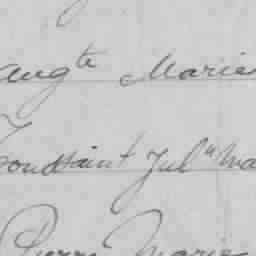 Augte Marie
Toussaint Juln Ma
Pierre Marie